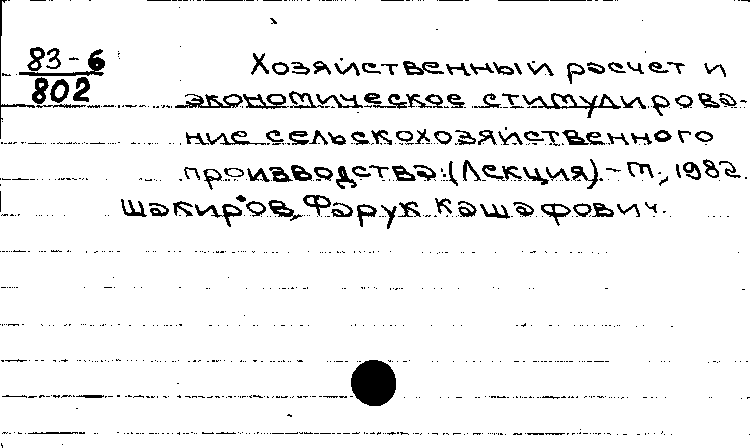 83-6
802
Хозяйственный расчет и
экономическое стимулирова-
ние сельскохозяйственного
производства: (Лекция). - М., 1982.
Шакиров, Фарук Кашафович.